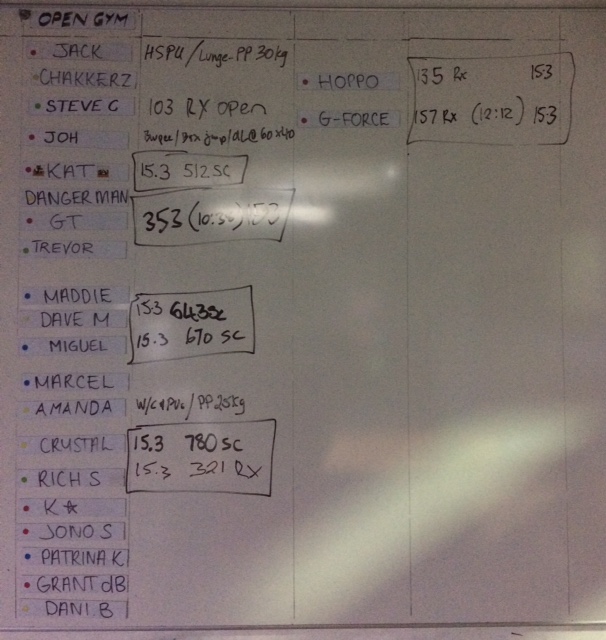 OPEN GYM
JACK HSPU/Lunge-PP 30kg
CHAKKERZ
STEVE G 103 RX OPEN
JOH
KAT 15.3 512 SC
DANGERMAN
GT 353 153
TREVOR
MADDIE 15.3 643 SC
DAVE M
MIGUEL 15.3 670 SC
MARCEL
AMANDA PP 25kg
CRYSTAL 15.3 780 SC
RICH S 15.3 321 RX
K☆
JONO S
PATRINA K
GRANT dB
DANI B
HOPPO 135 Rx 153
G-FORCE 157 Rx (12:12) 153